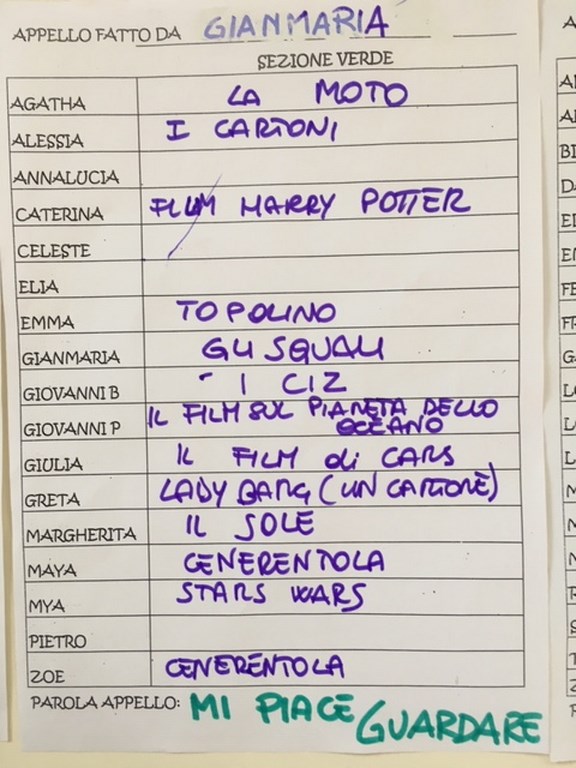 APPELLO FATTO DA GIANMARIA
SEZIONE VERDE
AGATHA LA MOTO
ALESSIA I CARTONI
ANNALUCIA
CATERINA FILM HARRY POTTER
CELESTE
ELIA
EMMA TOPOLINO
GIANMARIA GLI SQUALI
GIOVANNI B I CIZ
GIOVANNI P IL FILM SUL PIANETA DELLO
OCEANO
GIULIA IL FILM di CARS
GRETA LADY BARG (UN CARTONE)
MARGHERITA IL SOLE
MAYA CENERENTOLA
MYA STARS WARS
PIETRO
ZOE CENERENTOLA
PAROLA APPELLO: MI PIACE GUARDARE